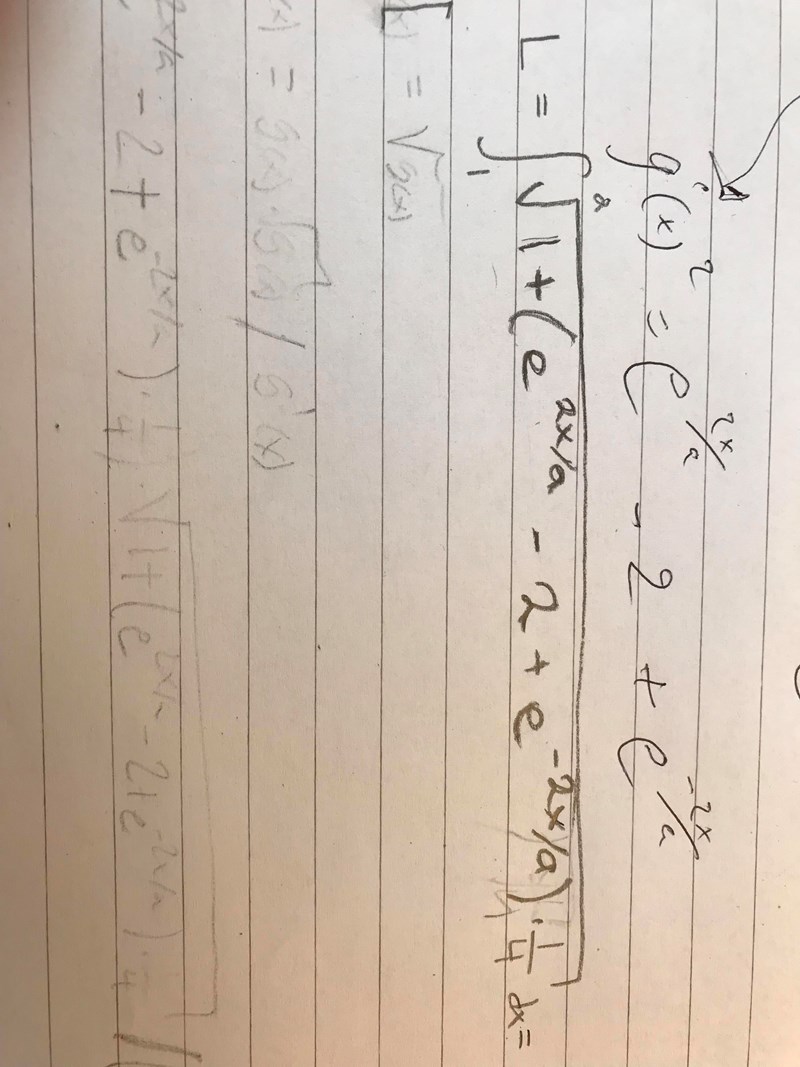 g'(x)² = e^2x/a - 2 + e^-2x/a
L = ∫₁² √1+(e^2x/a - 2 + e^-2x/a)·1/4 dx =
(x) = √g(x)
(x) = g(x)·√g(x) / g'(x)
2x/a - 2 + e^-2x/a)·1/4)·√1+(e^2x/a - 2+e^-2x/a)·1/4